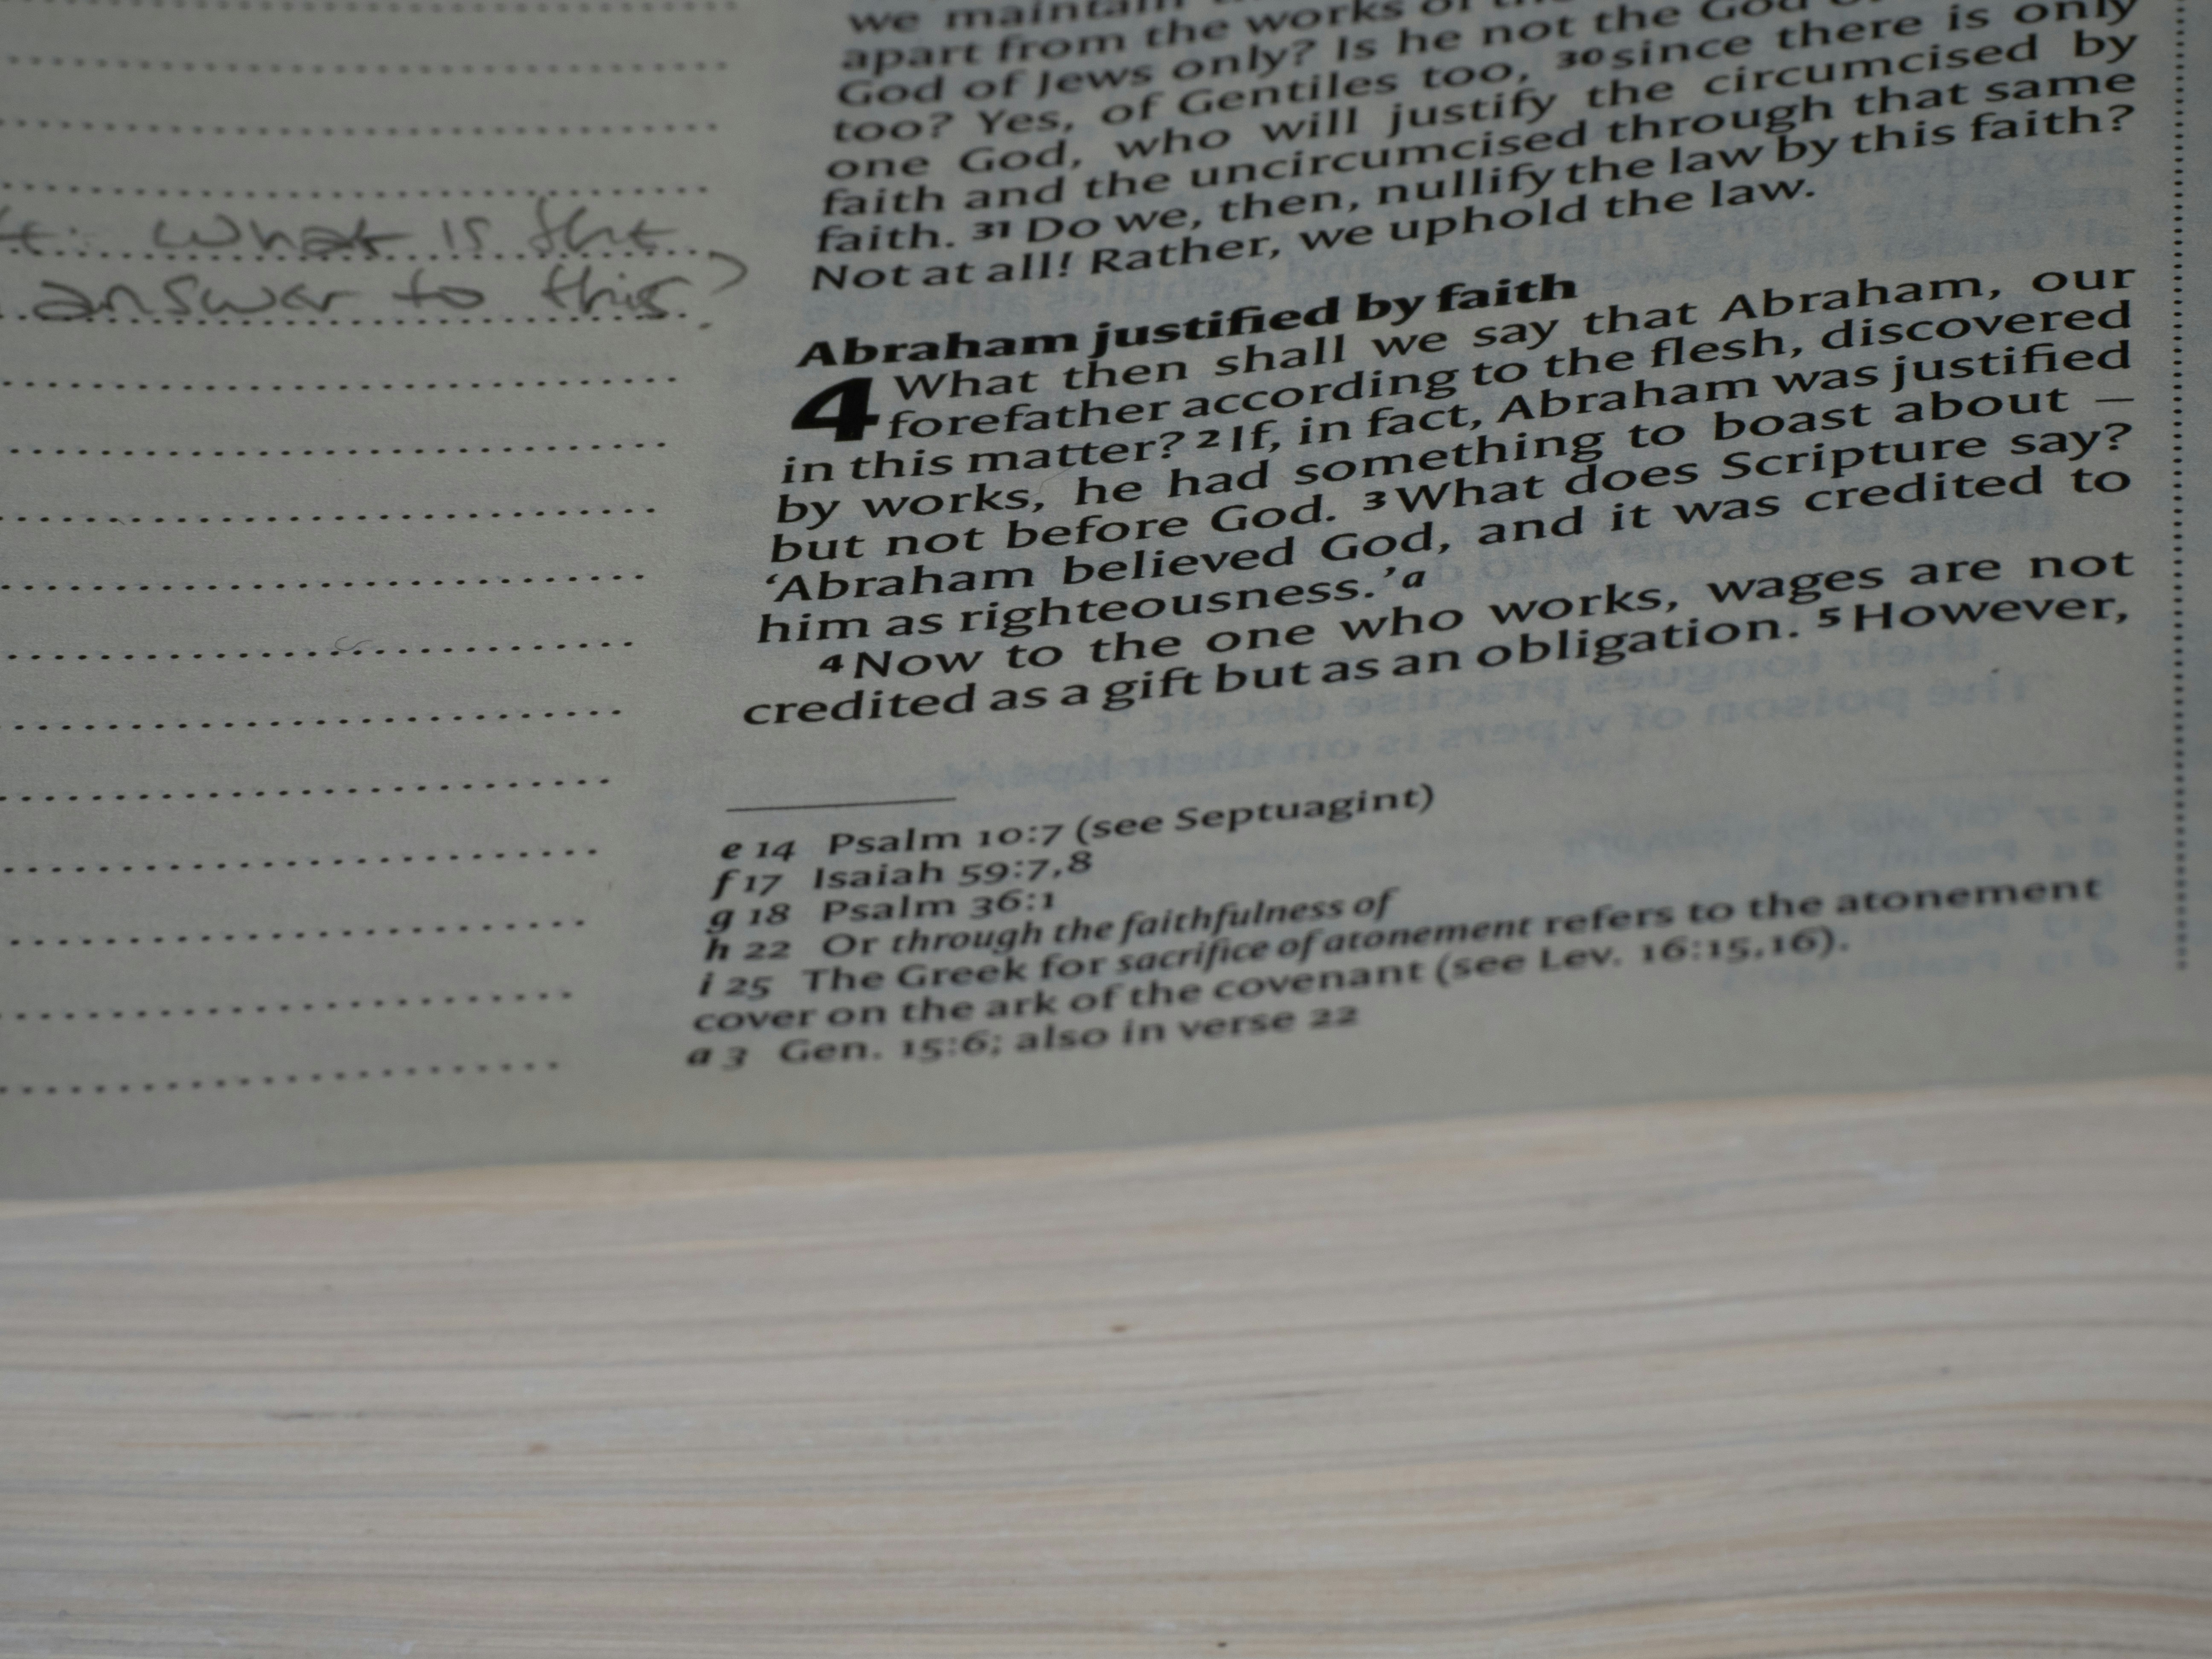 What is the
answer to this?
we maintain
apart from the works of
God of Jews only? Is he not the God
too? Yes, of Gentiles too, 30 since there is only
one God, who will justify the circumcised by
faith and the uncircumcised through that same
faith. 31 Do we, then, nullify the law by this faith?
Not at all! Rather, we uphold the law.
Abraham justified by faith
4 What then shall we say that Abraham, our
forefather according to the flesh, discovered
in this matter? 2 If, in fact, Abraham was justified
by works, he had something to boast about –
but not before God. 3 What does Scripture say?
‘Abraham believed God, and it was credited to
him as righteousness.’ a
4 Now to the one who works, wages are not
credited as a gift but as an obligation. 5 However,
e 14 Psalm 10:7 (see Septuagint)
f 17 Isaiah 59:7,8
g 18 Psalm 36:1
h 22 Or through the faithfulness of
i 25 The Greek for sacrifice of atonement refers to the atonement
cover on the ark of the covenant (see Lev. 16:15,16).
a 3 Gen. 15:6; also in verse 22